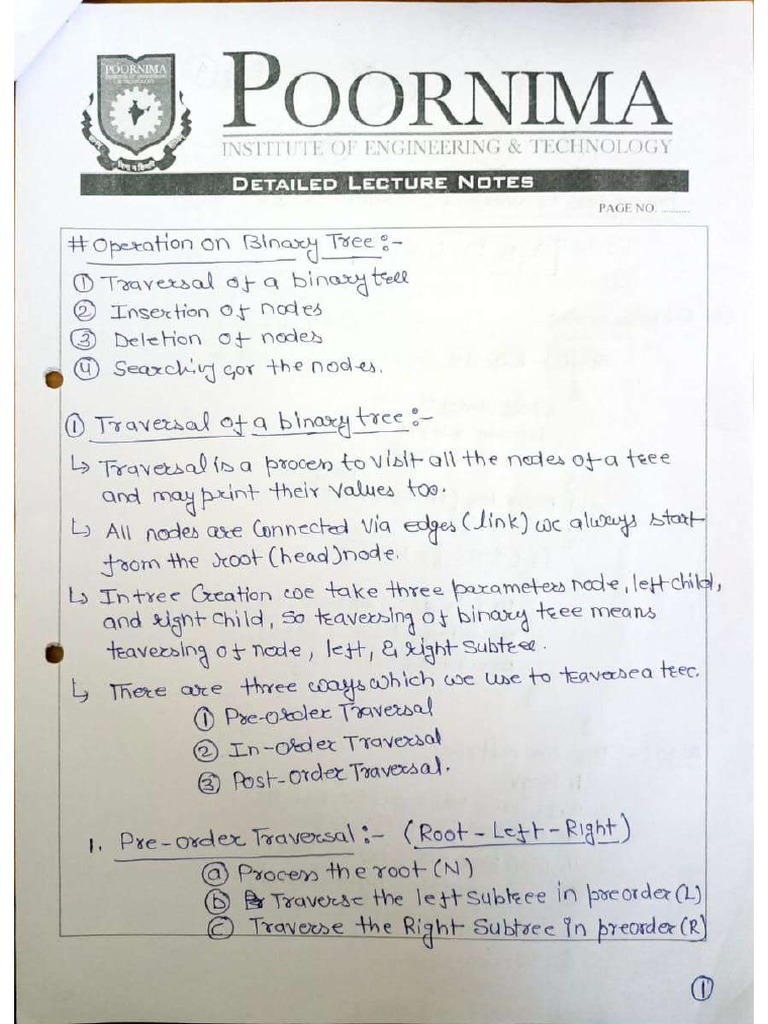 POORNIMA
INSTITUTE OF ENGINEERING
& TECHNOLOGY
POORNIMA
INSTITUTE OF ENGINEERING & TECHNOLOGY
DETAILED LECTURE NOTES
PAGE NO. ...........
# Operation on Binary Tree :-
① Traversal of a binary tree
② Insertion of nodes
③ Deletion of nodes
④ Searching for the nodes.
① Traversal of a binary tree :-
↳ Traversal is a process to visit all the nodes of a tree
and may print their values too.
↳ All nodes are Connected via edges (link) we always start
from the root (head) node.
↳ In tree Creation we take three parameters node, left child,
and right child, so traversing of binary tree means
traversing of node, left, & right subtree.
↳ There are three ways which we use to traverse a tree.
① Pre-order Traversal
② In-order Traversal
③ Post-order Traversal.
1. Pre-order Traversal :- (Root-Left-Right)
ⓐ Process the root (N)
ⓑ Traverse the left Subtree in preorder (L)
ⓒ Traverse the Right Subtree in preorder (R)
①